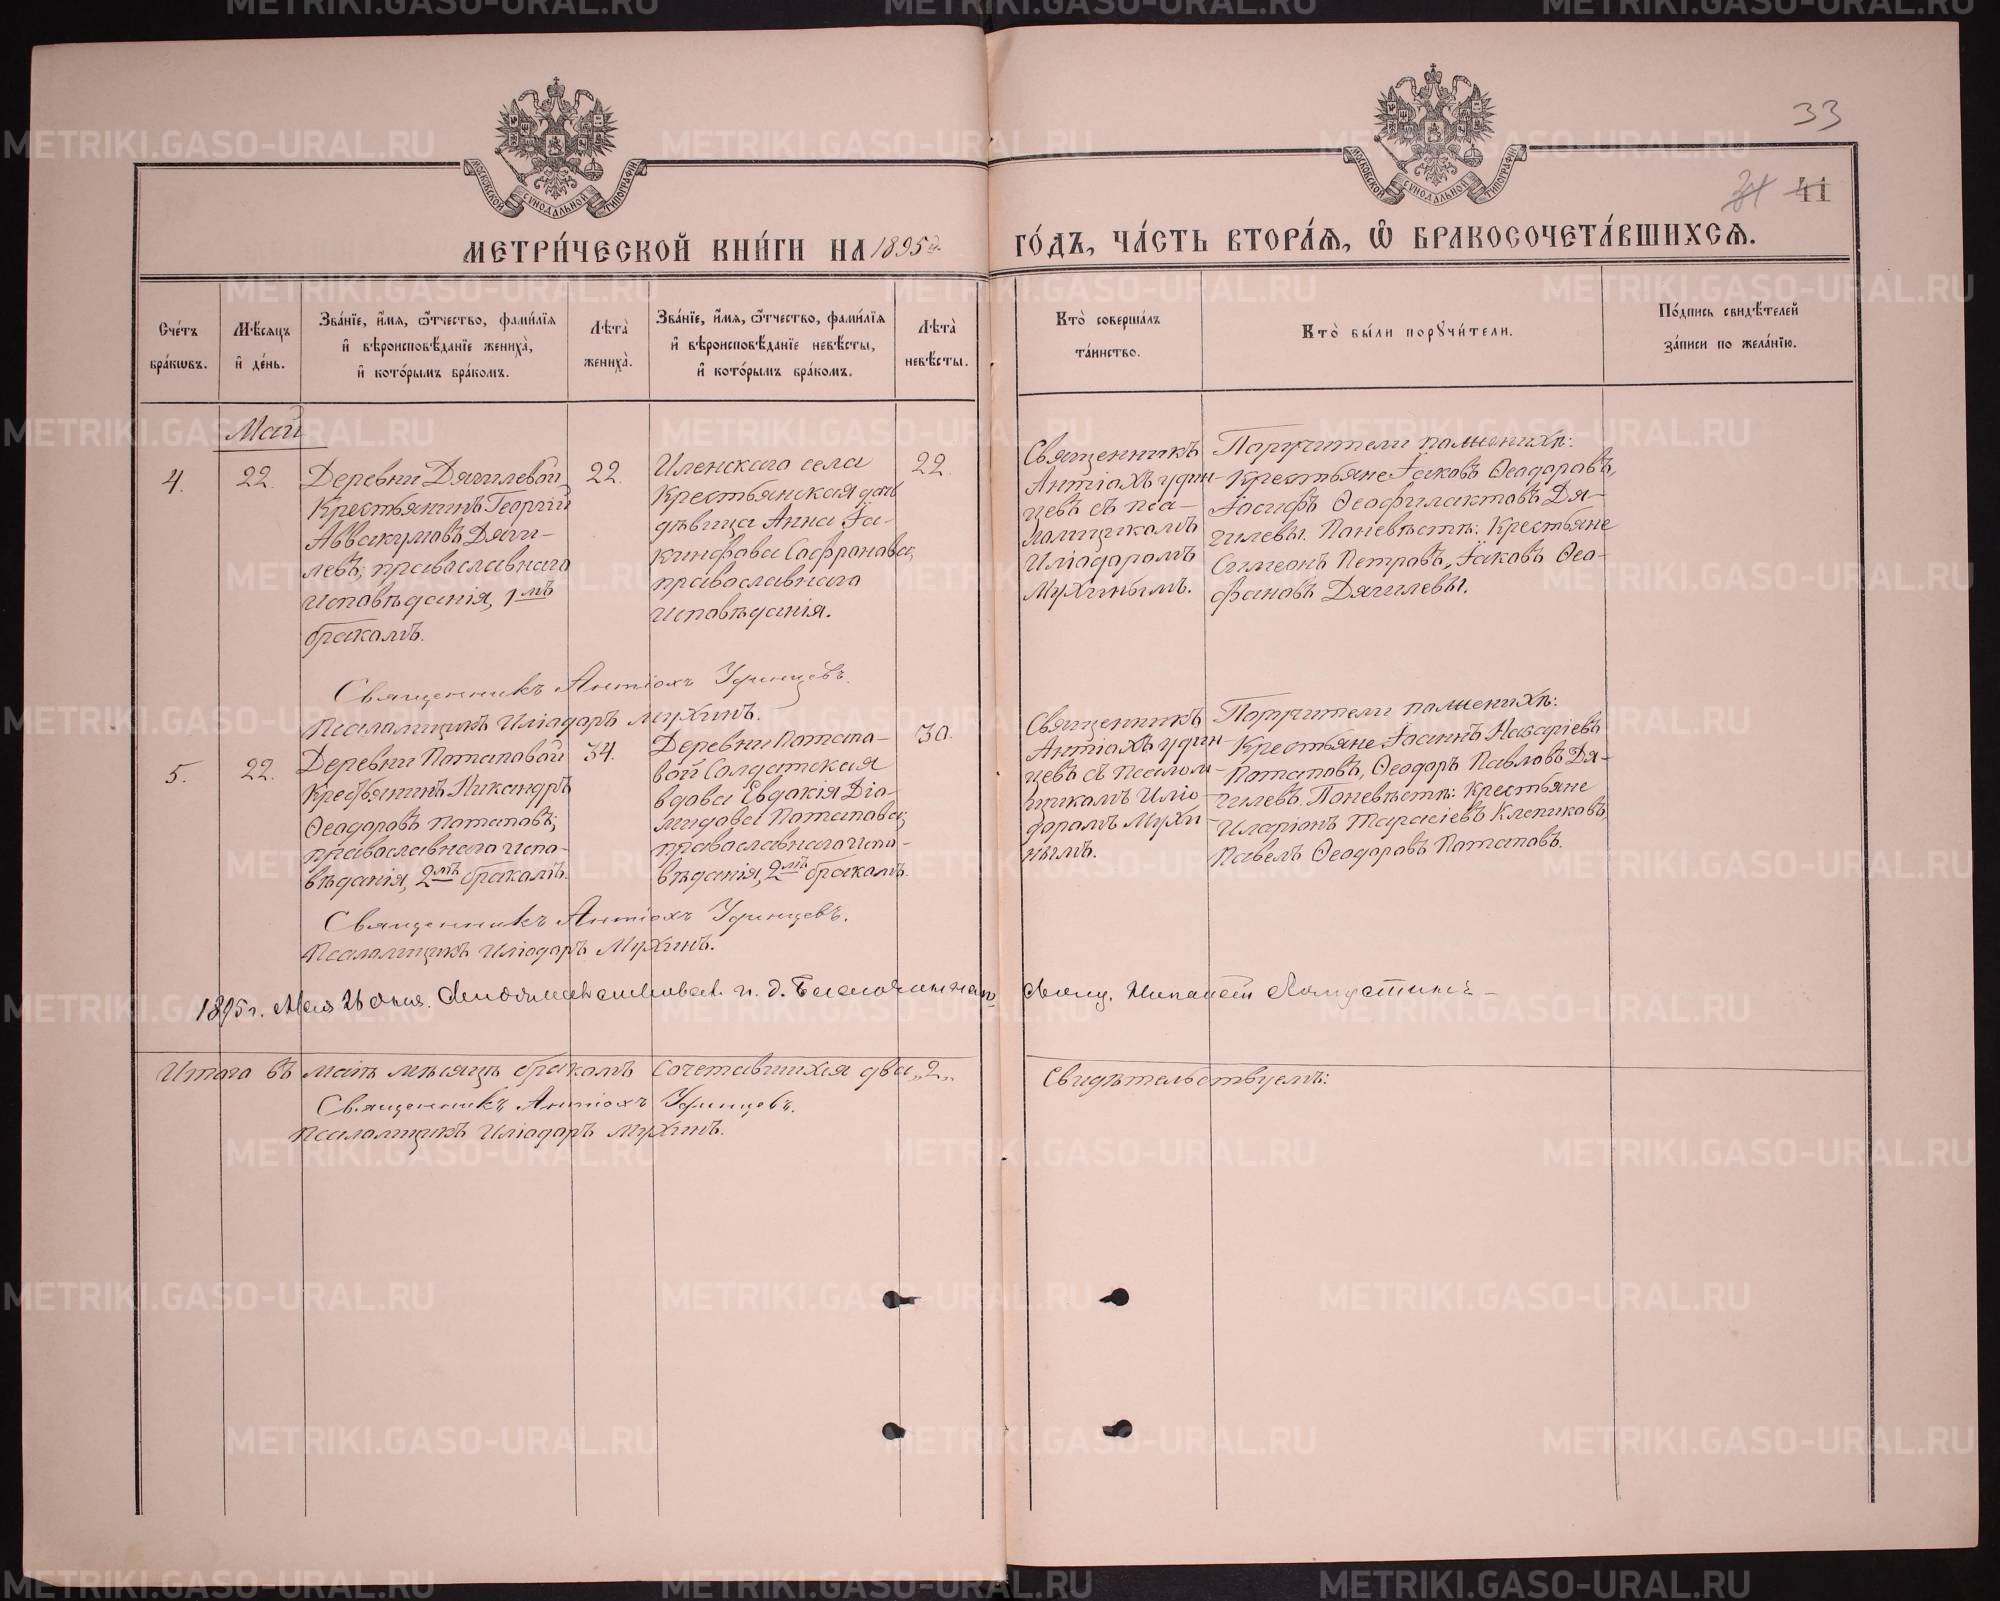 33
31 41
МОСКОВСКОЙ СѴНОДАЛЬНОЙ ТИПОГРАФІИ
МОСКОВСКОЙ СѴНОДАЛЬНОЙ ТИПОГРАФІИ
МЕТРИ́ЧЕСКОЙ КНИ́ГИ НА 1895 й ГО́ДЪ, ЧА́СТЬ ВТОРА́Я, Ѽ БРАКОСОЧЕТА́ВШИХСЯ.
Сче́тъ бра́кѡвъ.
Мѣ́сяцъ и҆ де́нь.
Зва́нїе, и҆́мя, ѻ҆́тчество, фами́лїя и҆ вѣроисповѣ́данїе жениха̀, и҆ кото́рымъ бра́комъ.
Лѣ́та жениха̀.
Зва́нїе, и҆́мя, ѻ҆́тчество, фами́лїя и҆ вѣроисповѣ́данїе невѣ́сты, и҆ кото́рымъ бра́комъ.
Лѣ́та невѣ́сты.
Кто̀ соверша́лъ та́инство.
Кто̀ бы́ли порꙋчи́тели.
По́дпись свидѣ́телей за́писи по жела́нїю.
Май
4.
22.
Деревни Дягилевой
Крестьянинъ Георгій
Аввакумовъ Дяги-
левъ, православнаго
исповѣданія, 1мъ
бракомъ.
22.
Иленскаго села
Крестьянская дочь
дѣвица Анна Іа-
кинфова Сафронова,
православнаго
исповѣданія.
22.
Священникъ
Антіохъ Удин-
цевъ съ пса-
ломщикомъ
Иліодоромъ
Мухинымъ.
Поручители по женихѣ:
Крестьяне Іаковъ Ѳеодоровъ,
Іосифъ Ѳеофилактовъ Дя-
гилевы. По невѣстѣ: Крестьяне
Симеонъ Петровъ, Іаковъ Ѳео-
фановъ Дягилевы.
Священникъ Антіохъ Удинцевъ.
Псаломщикъ Иліодоръ Мухинъ.
5.
22.
Деревни Потаповой
Крестьянинъ Никандръ
Ѳеодоровъ Потаповъ,
православнаго испо-
вѣданія, 2мъ бракомъ.
34.
Деревни Потапо-
вой Солдатская
вдова Евдокія Діо-
мидова Потапова,
православнаго испо-
вѣданія, 2мъ бракомъ.
30.
Священникъ
Антіохъ Удин-
цевъ съ псалом-
щикомъ Иліо-
доромъ Мухи-
нымъ.
Поручители по женихѣ:
Крестьяне Іоаннъ Назаріевъ
Потаповъ, Ѳеодоръ Павловъ Дя-
гилевъ. По невѣстѣ: Крестьяне
Иларіонъ Тарасіевъ Клепиковъ,
Павелъ Ѳеодоровъ Потаповъ.
Священникъ Антіохъ Удинцевъ.
Псаломщикъ Иліодоръ Мухинъ.
1895 г. Мая 26 дня. Свидѣтельствовалъ и. д. Благочиннаго
Итого въ маѣ мѣсяцѣ бракомъ сочетавшихся два „2„
Свидѣтельствуемъ:
Священникъ Антіохъ Удинцевъ.
Псаломщикъ Иліодоръ Мухинъ.
METRIKI.GASO-URAL.RU